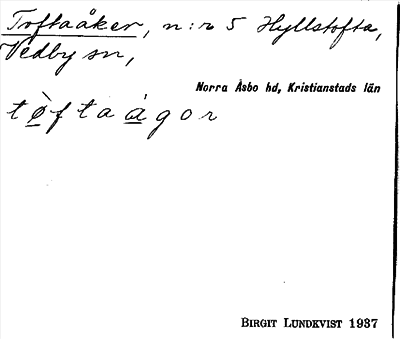 Toftaåker, n:r 5 Hyllstofta,
Vedby sn,
Norra Åsbo hd, Kristianstads län
tø̀ftaågor
BIRGIT LUNDKVIST 1937